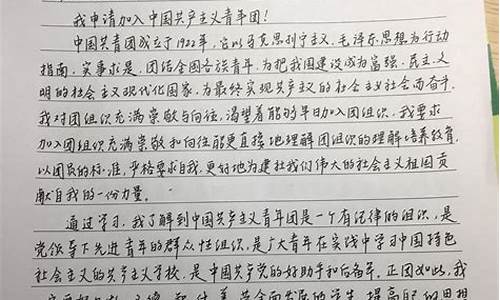 我申请加入中国共产主义青年团！
中国共青团成立于1922年，它以马克思列宁主义、毛泽东思想为行动
指南，实事求是，团结全国各族青年，为把我国建设成为富强、民主、文
明的社会主义现代化国家，为最终实现共产主义的社会主义社会而奋斗。
我对团组织充满崇敬与向往，渴望着能够早日加入团组织。我要求
加入团组织充满崇敬和向往能更直接地理解团组织的理解培养教育，
以团员的标准，严格要求自我，更好地为建社我们伟大的社会主义祖国贡
献自我的一份力量。
通过学习，我了解到中国共产主义青年团是一个有纪律的组织，是
党领导下先进青年的群众性组织，是广大青年在实践中学习中国特色
社会主义的共产主义学校，是中国共产党的好助手和后备军。正因如此，我